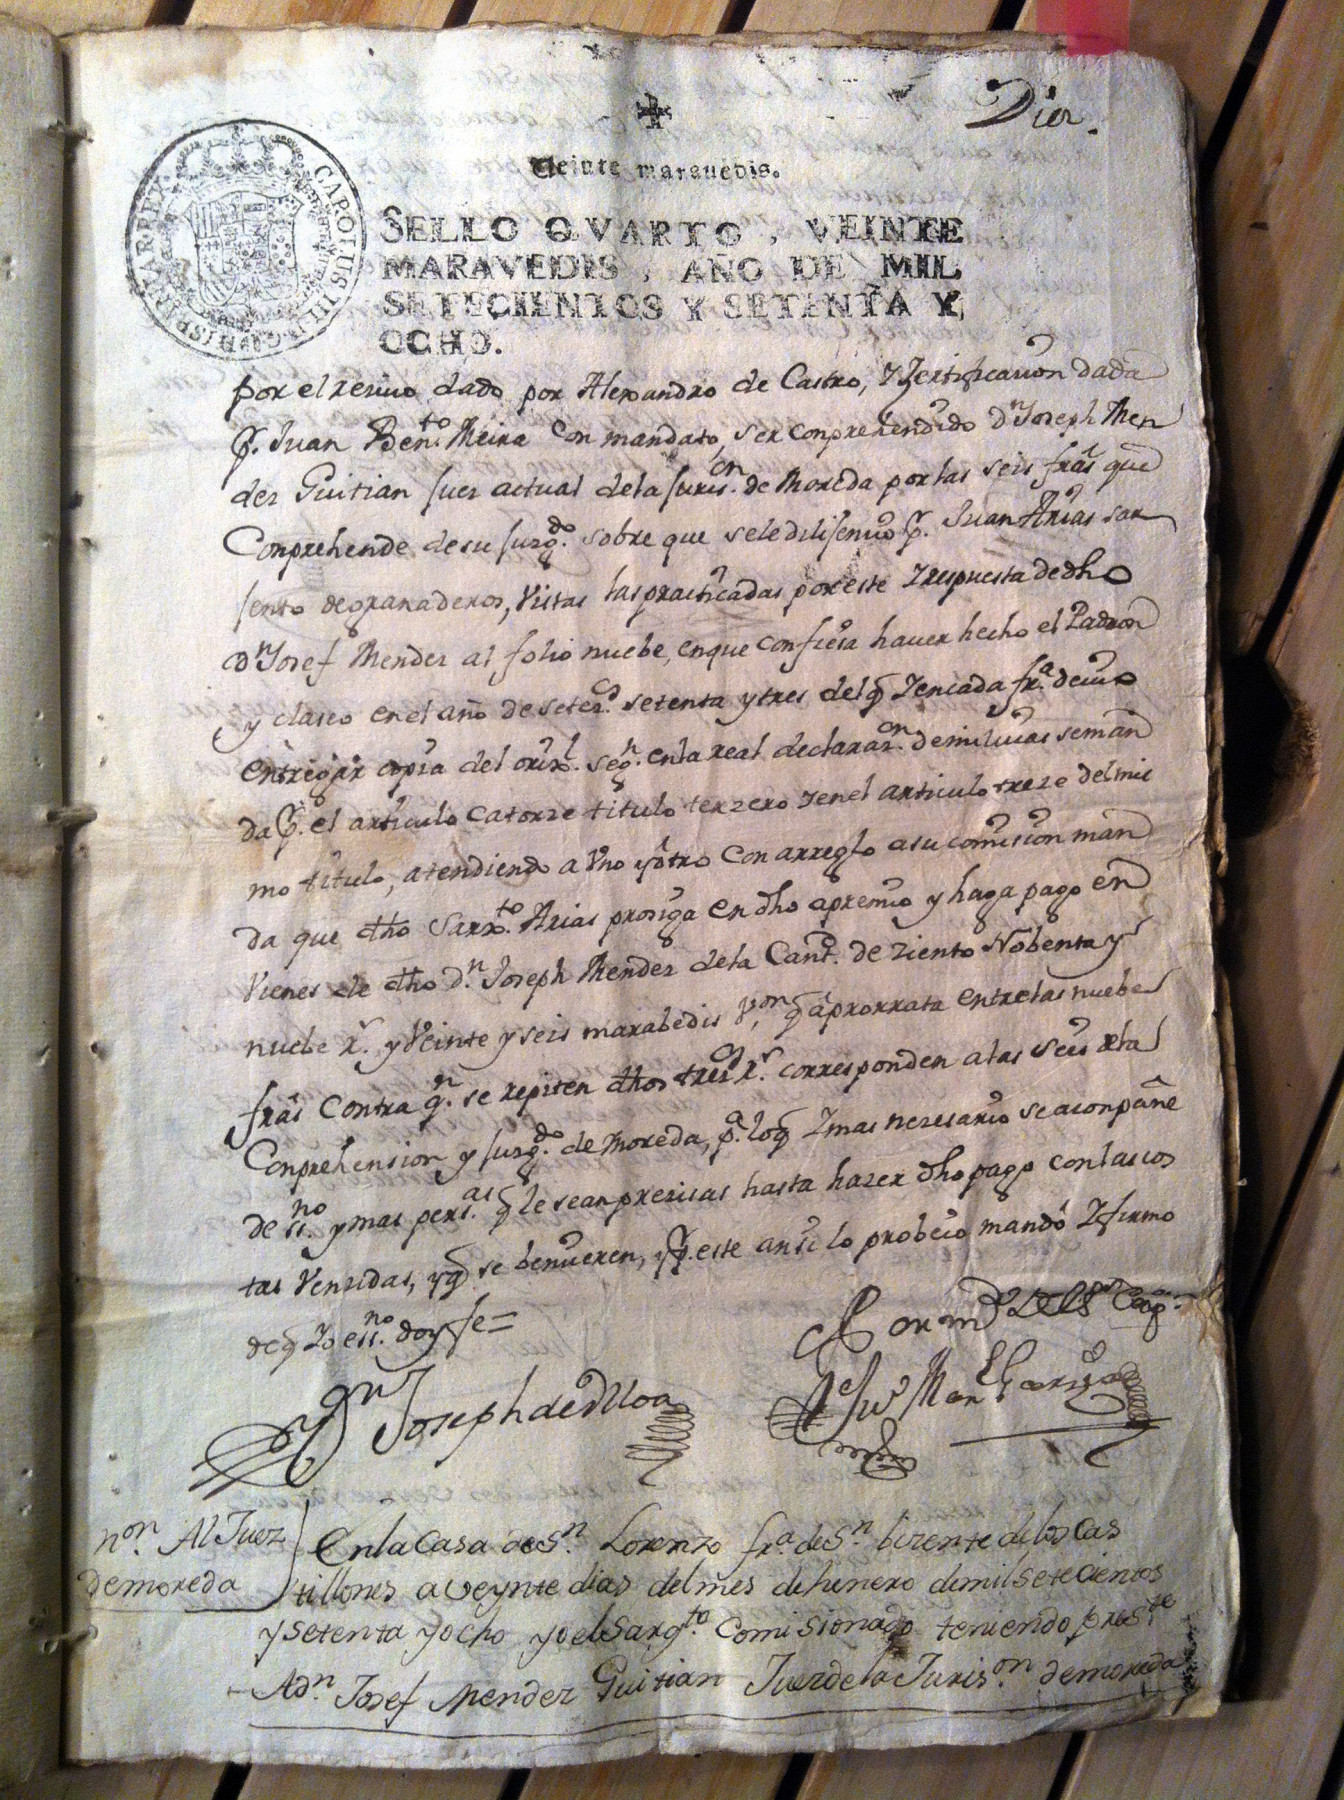 Diez.
Veinte maravedis.
CAROLUS III D G HISPANIAR REX
SELLO QVARTO, VEINTE
MARAVEDIS, AÑO DE MIL
SETECIENTOS Y SETENTA Y
OCHO.
por el reciuo dado por Alexandro de Castro, y Zertificazion dada
p.r Juan Ben.to Meira con mandato, ser conprehendido D.n Joseph Men
dez Guitian Juez actual de la Juris.on de Moreda por las seis fras que
Conprehende de su Juzg.do sobre que se le dilijenuo p.r Juan Arias sar
jento de granaderos, Vistas las practicadas por este y respuesta de dho
D.n Josef Mendez al folio nuebe, en que confiesa hauer hecho el Padron
y clasco en el año de setez.s setenta y tres del q Zen cada fr.a deuio
entregar copia del orix.l seg.n en la real declaraz.on de miliuias se man
da p.r el articulo catorze titulo terzero y en el articulo treze del mis
mo titulo, atendiendo a Vno y otro con arreglo a su comision man
da que dho Sarx.to Arias prosiga en dho apremio y haga pago en
Vienes de dho D.n Joseph Mendez de la Cant. de ziento Nobenta y
nuebe r.s y Veinte y seis marabedis V.on q a prorrata entre las nuebe
fras Contra q.n se repiten dhos tres r.s corresponden a las seis de la
Conprehension y Juzg.do de Moreda, p.a lo q y mas nezesario se aconpañe
de ss.no y mas pers.as q le sean prezisas hasta hazer dho pago con las cos
tas Venzidas, y q se benzieren, y p.r este ansi lo probeio mandó y firmo
de q Yo ess.no doy fe =
D.n Joseph de Ulloa
n.on Al Juez
de moreda
En la Casa de S.n Lorenzo fr.a de S.n bizente de los Cas
tillones a veynte dias del mes de henero de mil setecientos
y setenta y ocho yo el Sarg.to Comisionado teniendo pres.te
A d.n Josef Mendez Guitian Juez de la Juris.on de moreda